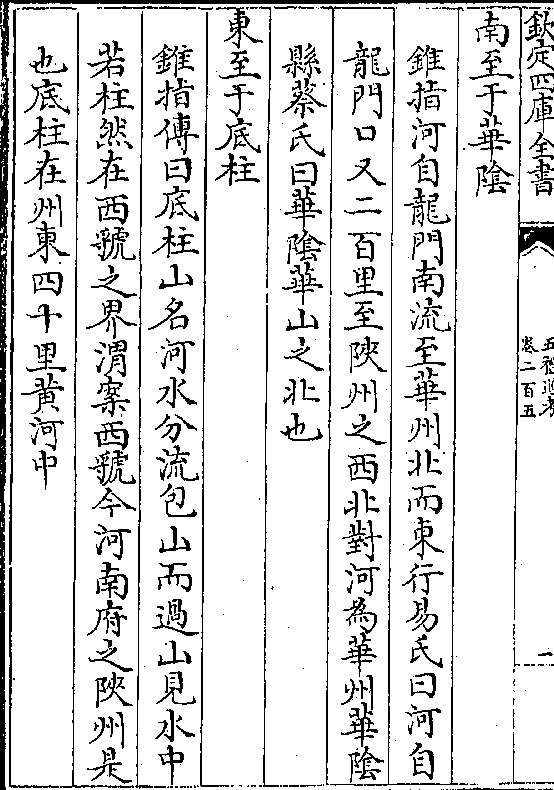 欽定四庫全書
五禮通考
卷二百五
一
南至于華隂
錐指河自龍門南流至華州北而東行易氏曰河自
龍門口又二百里至陜州之西北對河為華州華隂
縣蔡氏曰華隂華山之北也
東至于底柱
錐指傳曰底柱山名河水分流包山而過山見水中
若柱然在西虢之界渭案西虢今河南府之陜州是
也底柱在州東四十里黄河中